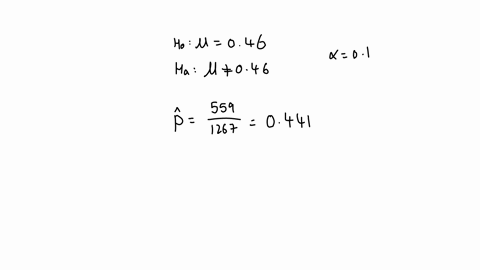 H₀: μ = 0.46
Hₐ: μ ≠ 0.46
α = 0.1
p̂ = 559/1267 = 0.441